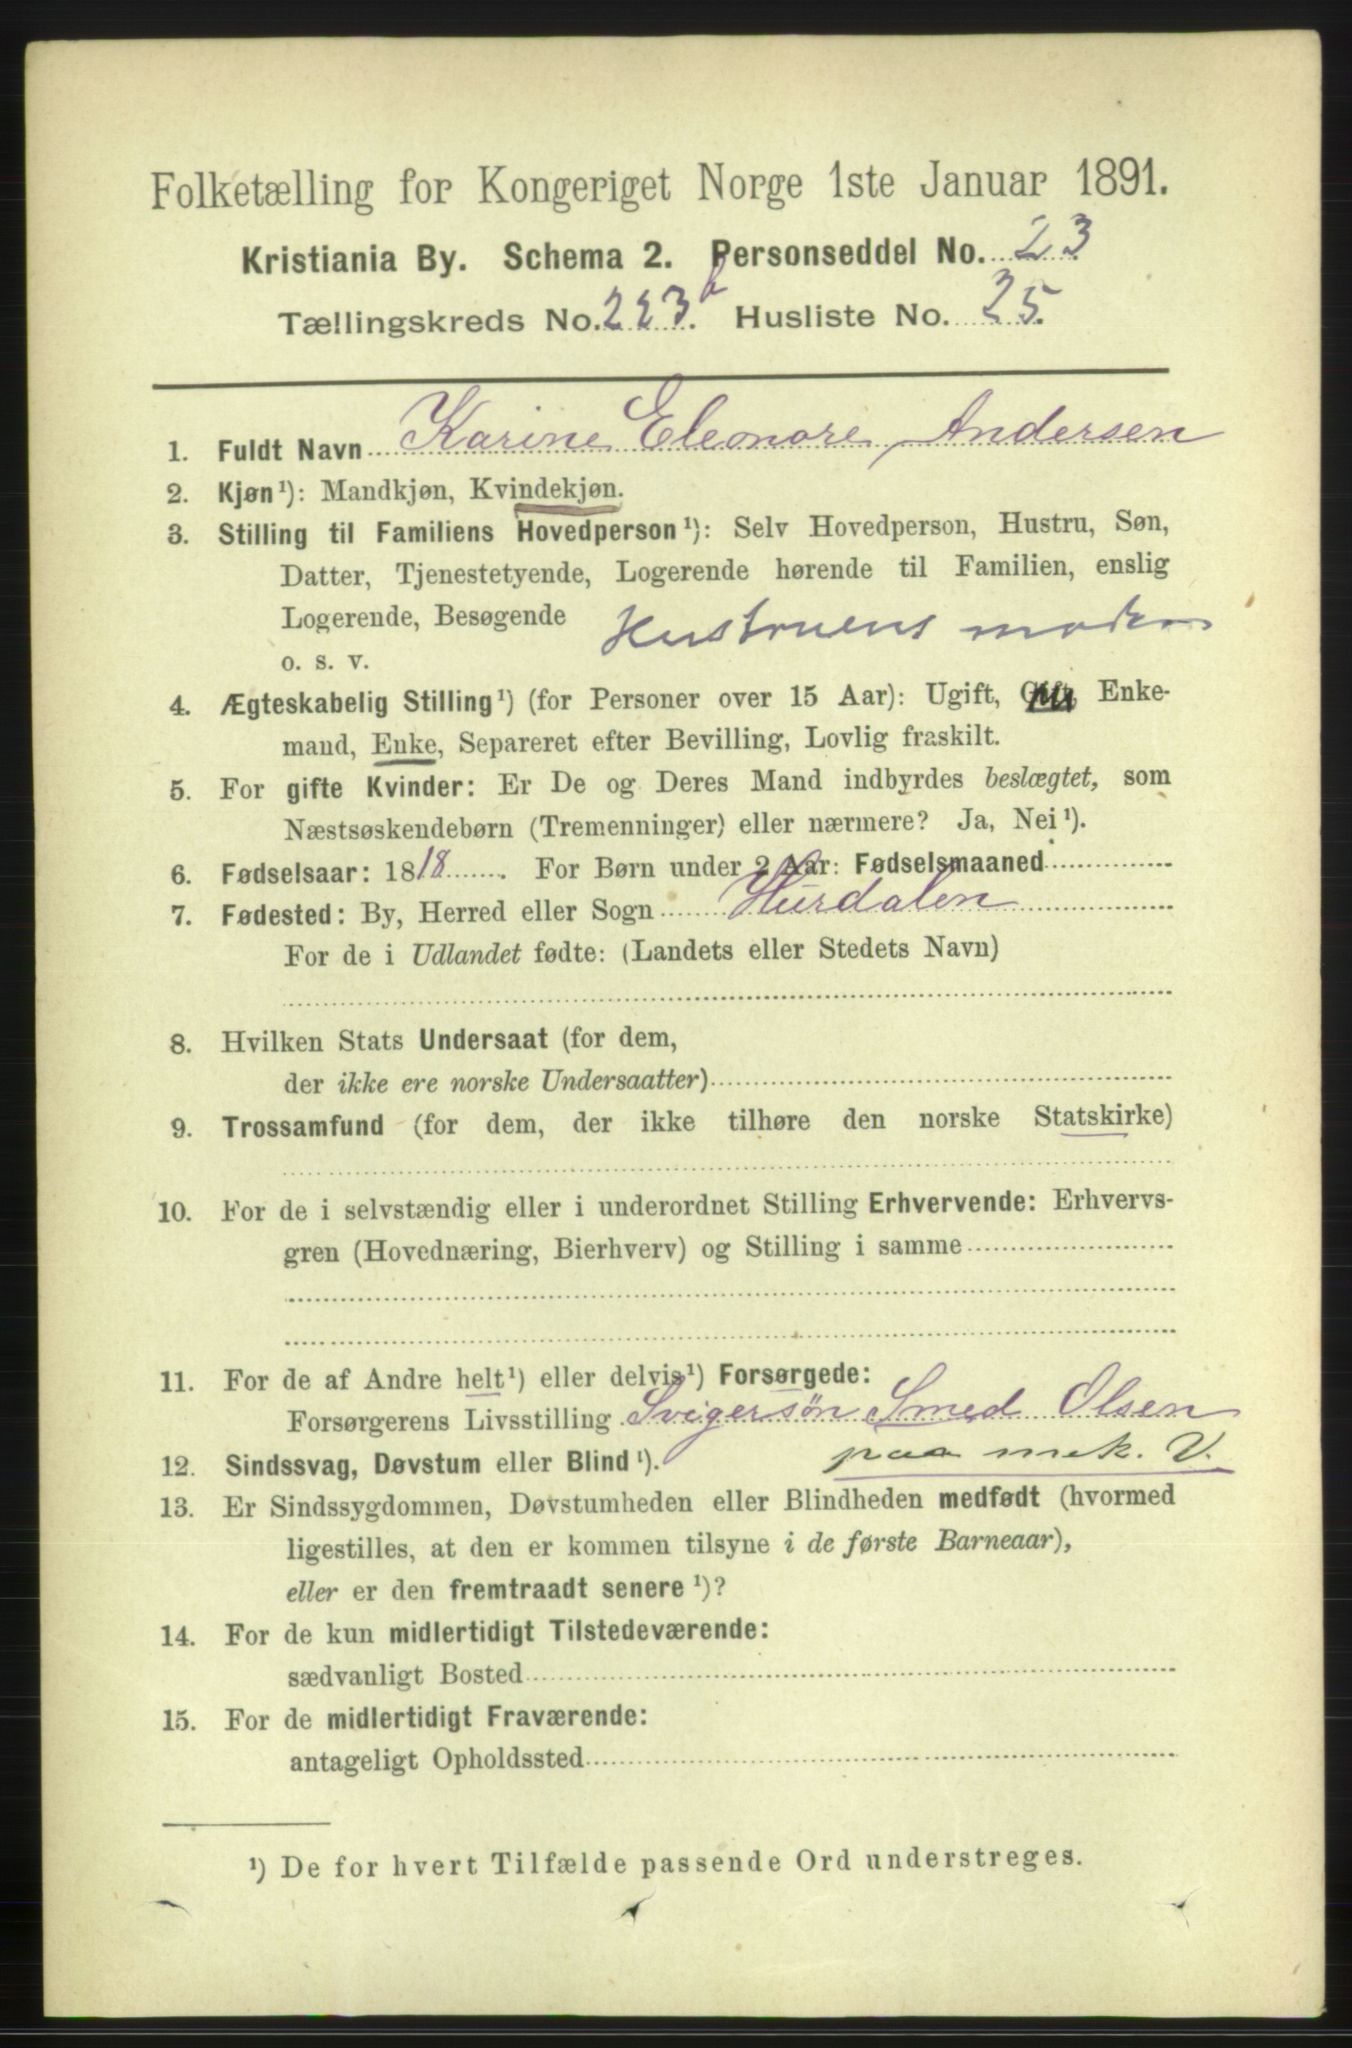 Folketælling for Kongeriget Norge 1ste Januar 1891.
Kristiania By. Schema 2. Personseddel No. 23
Tællingskreds No. 223 b Husliste No. 25.
1. Fuldt Navn Karine Eleonore Andersen
2. Kjøn¹): Mandkjøn, Kvindekjøn.
3. Stilling til Familiens Hovedperson¹): Selv Hovedperson, Hustru, Søn,
Datter, Tjenestetyende, Logerende hørende til Familien, enslig
Logerende, Besøgende Hustruens moder
o. s. v.
4. Ægteskabelig Stilling¹) (for Personer over 15 Aar): Ugift, Gift, Enke-
mand, Enke, Separeret efter Bevilling, Lovlig fraskilt.
5. For gifte Kvinder: Er De og Deres Mand indbyrdes beslægtet, som
Næstsøskendebørn (Tremenninger) eller nærmere? Ja, Nei¹).
6. Fødselsaar: 1818. For Børn under 2 Aar: Fødselsmaaned
7. Fødested: By, Herred eller Sogn Hurdalen
For de i Udlandet fødte: (Landets eller Stedets Navn)
8. Hvilken Stats Undersaat (for dem,
der ikke ere norske Undersaatter)
9. Trossamfund (for dem, der ikke tilhøre den norske Statskirke)
10. For de i selvstændig eller i underordnet Stilling Erhvervende: Erhvervs-
gren (Hovednæring, Bierhverv) og Stilling i samme
11. For de af Andre helt¹) eller delvis¹) Forsørgede:
Forsørgerens Livsstilling Svigersön Smed Olsen
paa mek. V.
12. Sindssvag, Døvstum eller Blind¹).
13. Er Sindssygdommen, Døvstumheden eller Blindheden medfødt (hvormed
ligestilles, at den er kommen tilsyne i de første Barneaar),
eller er den fremtraadt senere¹)?
14. For de kun midlertidigt Tilstedeværende:
sædvanligt Bosted
15. For de midlertidigt Fraværende:
antageligt Opholdssted
¹) De for hvert Tilfælde passende Ord understreges.